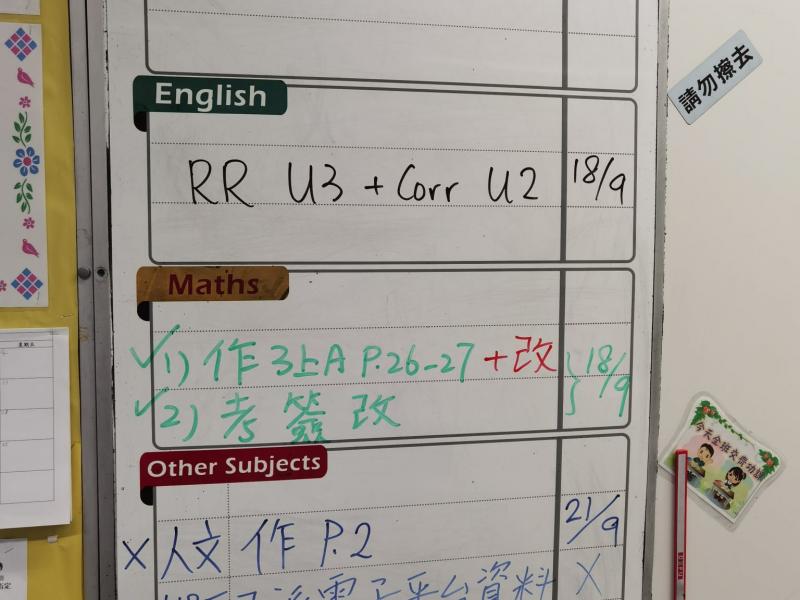 English
RR U3 + Corr U2 18/9
Maths
✓1) 作 3上A P.26-27 +改 } 18/9
✓2) 考 簽 改
Other Subjects
x 人文 作 P.2 21/9
電子平台資料 X
請勿擦去
今天全班交齊功課
星期五